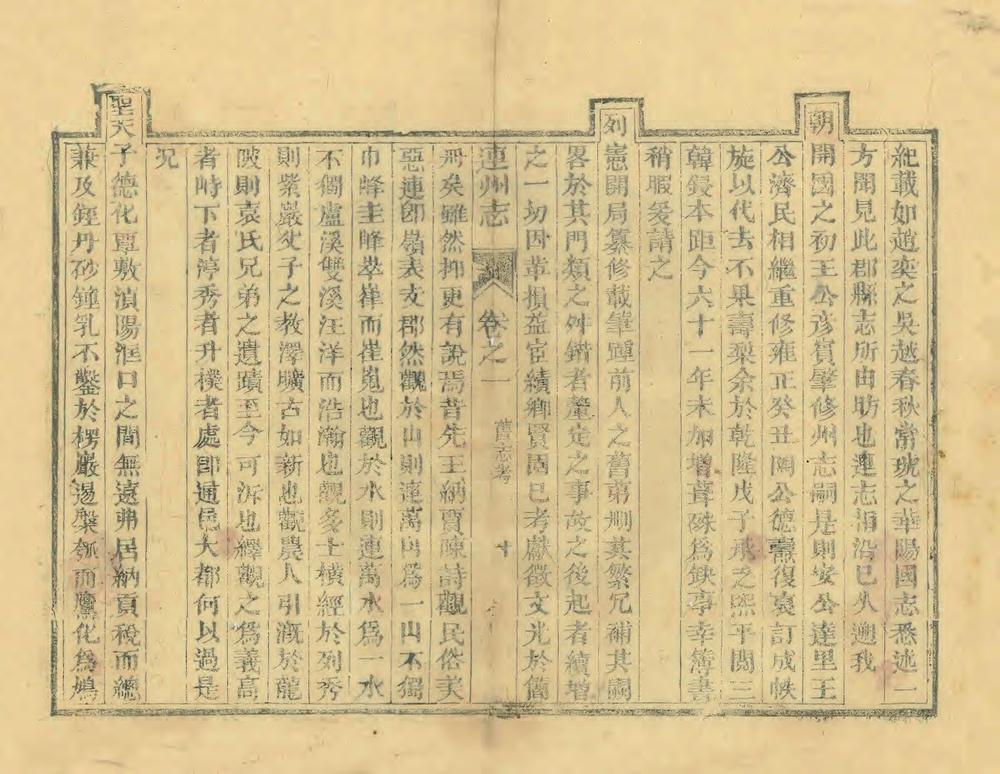 紀載如趙奕之吳越春秋常琥之華陽國志悉述一
方聞見此郡縣志所由昉也連志相沿已久遡我
朝開國之初王公彥賓肇修州志嗣是則安公達里王
公濟民相繼重修雍正癸丑閔公德復裒訂成帙
旋以代去不果壽梨余於乾隆戊子承乏熙平閱三
韓鋟本距今六十一年未加增葺殊爲缺事幸簿書
稍暇爰請之
列憲開局纂修載筆踵前人之舊第刪其繁冗補其闕
畧於其門類之舛錯者釐定之事故之後起者續增
之一切因革損益宦績鄉賢固已考獻徵文光於簡
連州志 卷之一 舊志考 十
冊矣雖然抑更有說焉昔先王納賈陳詩觀民俗美
惡連卽嶺表支郡然觀於山則連萬山爲一山不獨
巾峰圭峰崒嵂而崔嵬也觀於水則連萬水爲一水
不獨盧溪雙溪汪洋而浩瀚也觀多士橫經於列秀
則紫巖父子之教澤曠古如新也觀農人引漑於龍
陂則袁氏兄弟之遺蹟至今可泝也繹觀之爲義高
者峙下者渟秀者升樸者處卽通邑大都何以過是
况
聖天子德化覃敷湞陽洭口之間無遠弗居納貢稅而總
兼及銍丹砂鐘乳不鑿於楞巖遏槃瓠而鷹化爲鳩